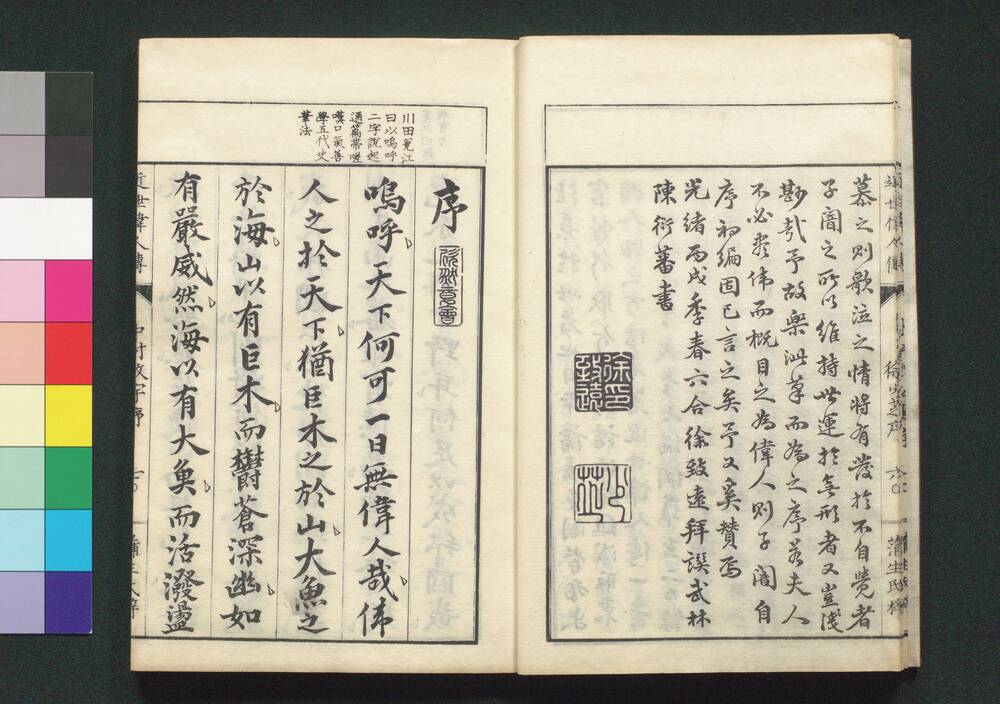 慕之則歌泣之情將有發於不自覺者
子闇之所以維持世運於無形者又豈淺
尠哉予故樂泚筆而為之序若夫人
不必盡偉而概目之為偉人則子闇自
序初編固已言之矣予又奚贅焉
光緒丙戌季春六合徐致遠拜譔武林
陳衍蕃書
徐印致遠
少芝
川田甕江
曰以嗚呼
二字說起
通篇帶嗟
嘆口氣善
學五代史
筆法
序
嗚呼天下何可一日無偉人哉偉
人之於天下猶巨木之於山大魚之
於海山以有巨木而欝蒼深幽如
有嚴威然海以有大魚而活潑盪
近世偉人傳
蒲生氏梓